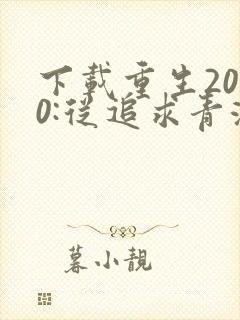 下載重生20
0:從追求青
暮小靚